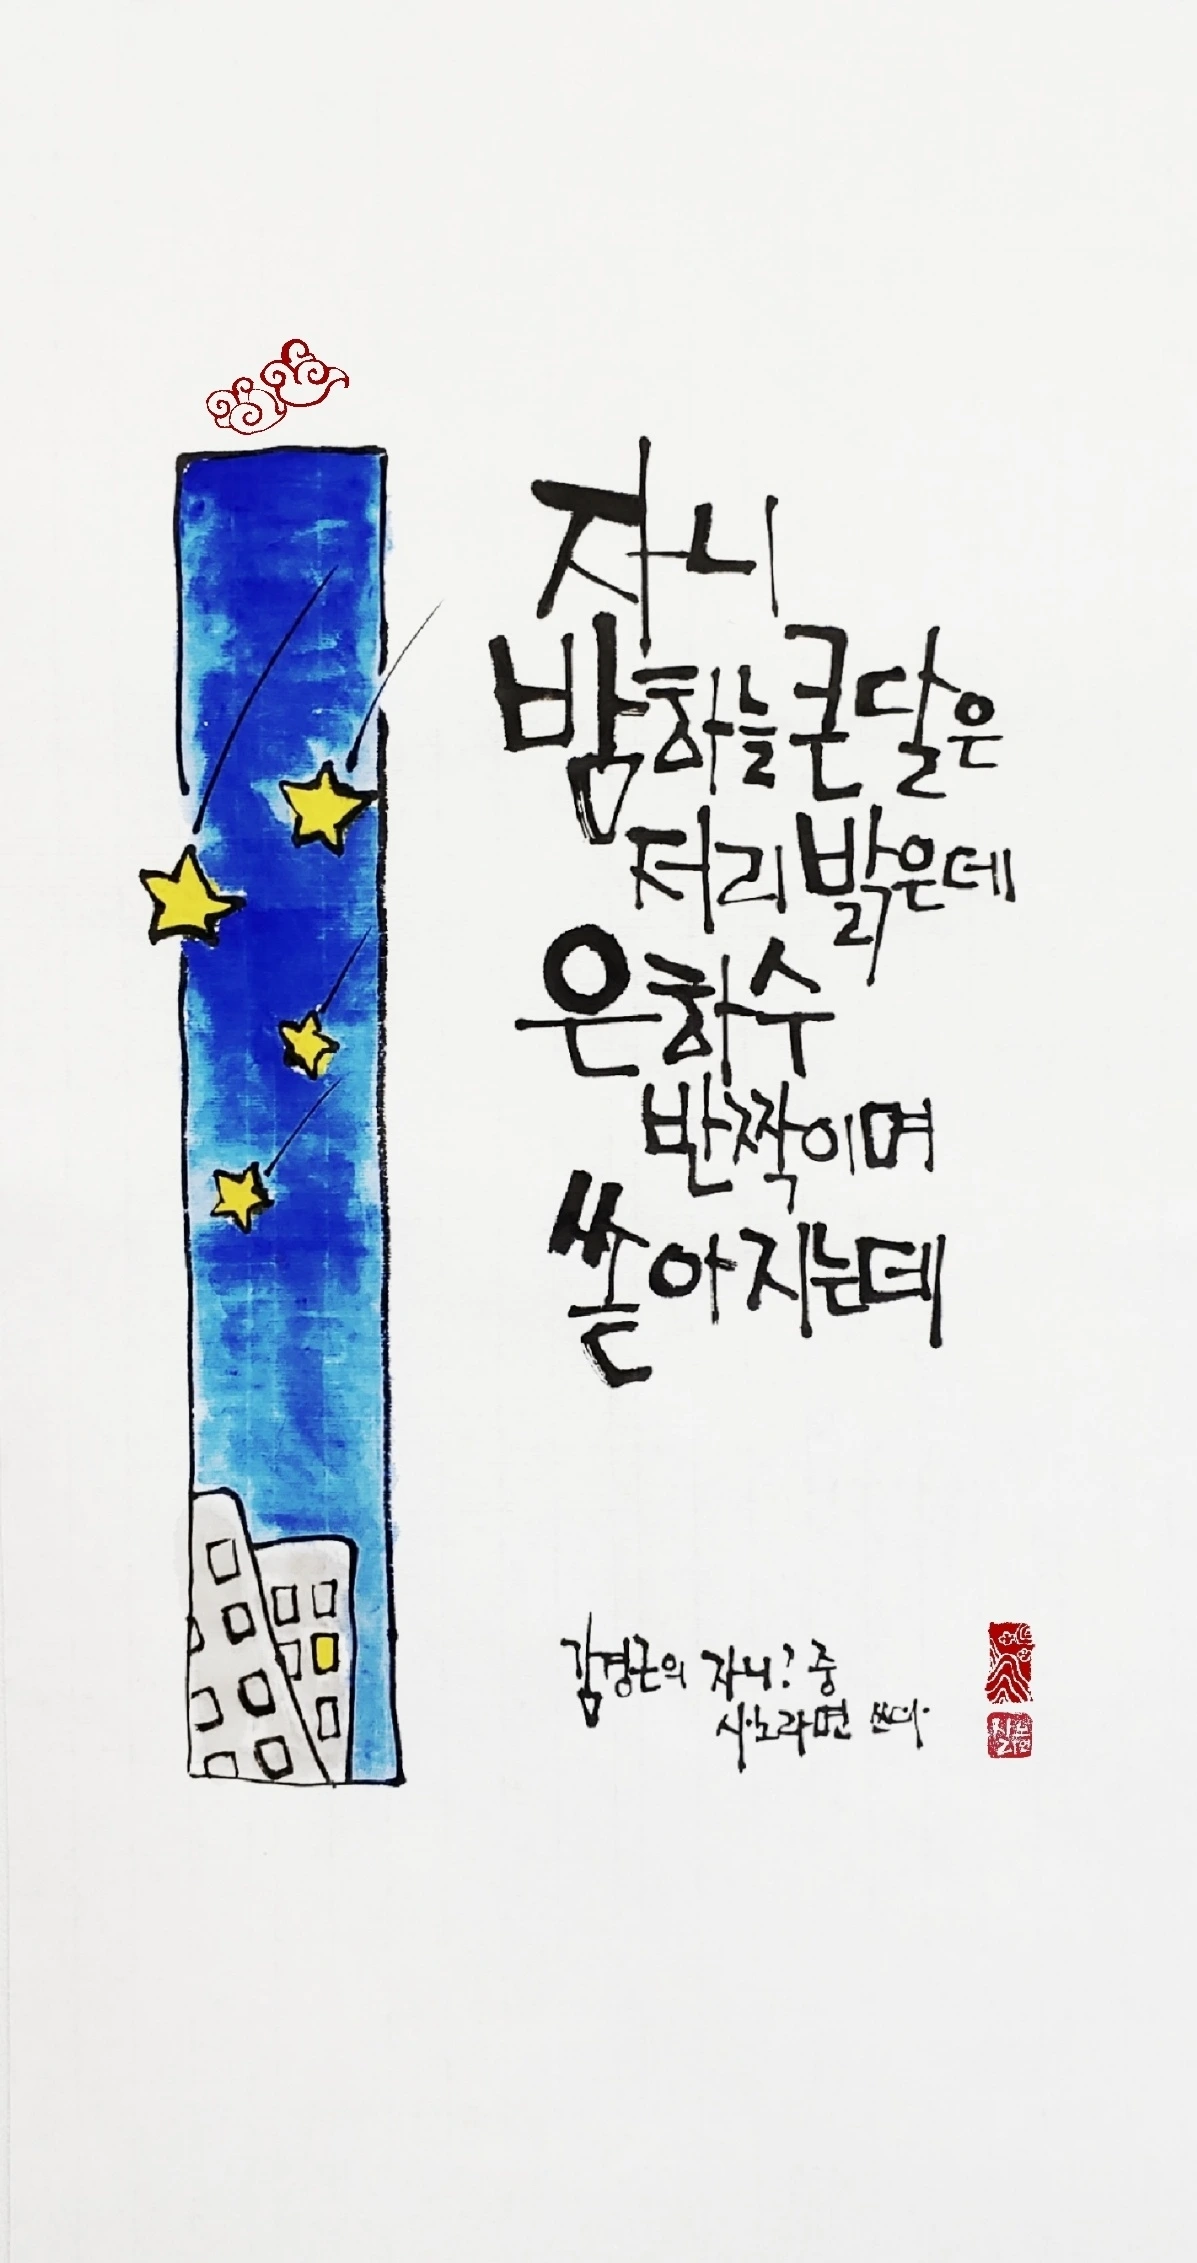 자니
밤하늘 큰 달은
저리 밝은데
은하수
반짝이며
쏟아지는데
김경근의 자니? 중
시노라면 쓰다.